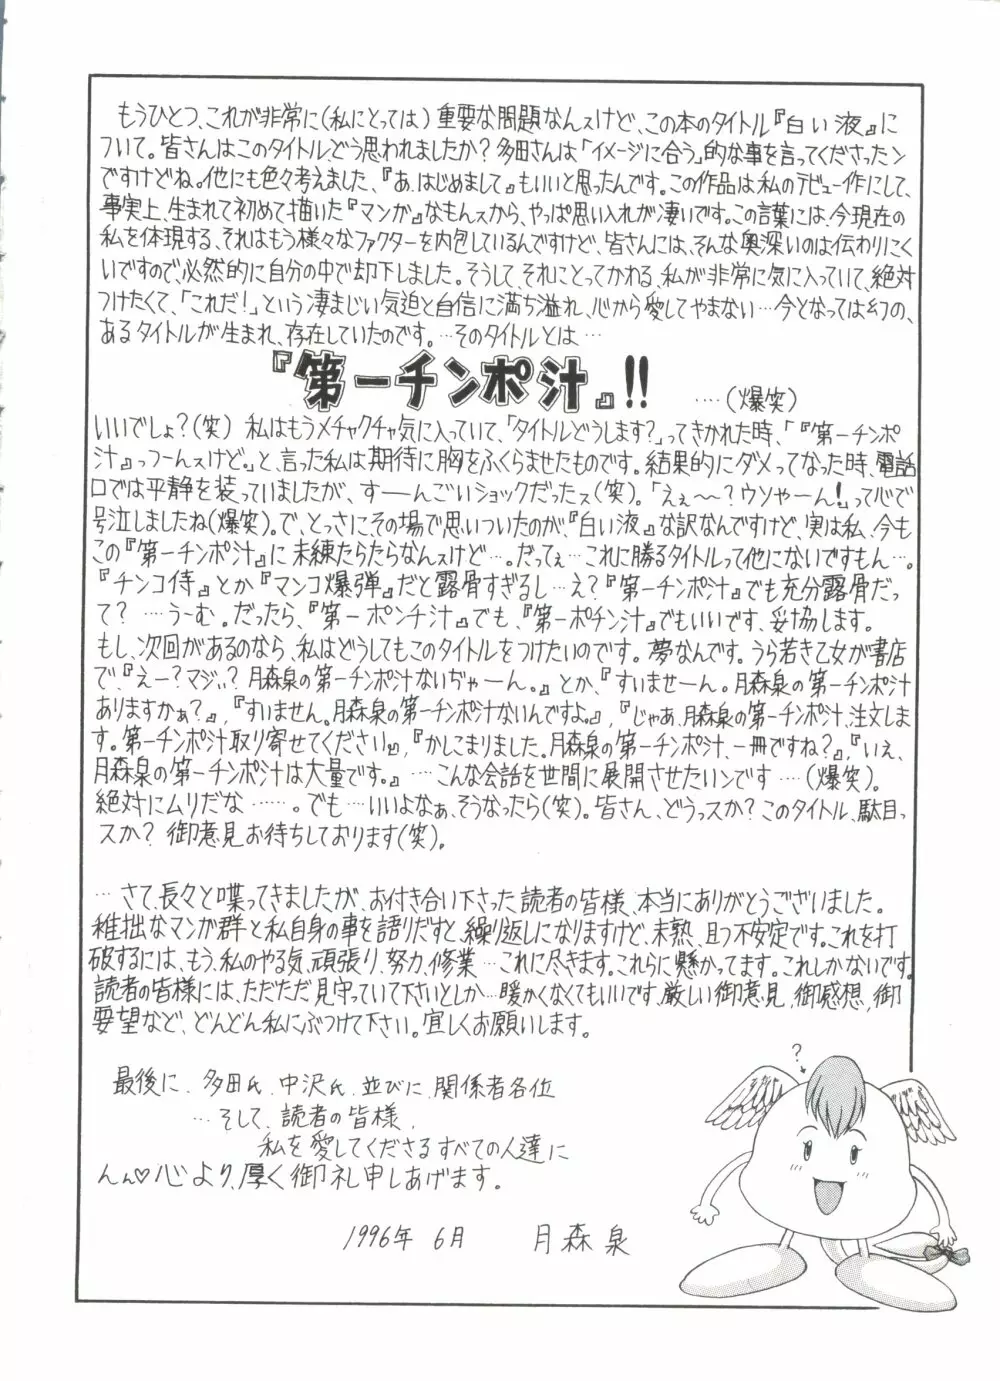 もうひとつ、これが非常に(私にとっては)重要な問題なんスけど、この本のタイトル『白い液』に
ついて。皆さんはこのタイトル、どう思われましたか?多田さんは「イメージに合う」的な事を言ってくださったン
ですけどね。他にも色々考えました、『あ、はじめまして』もいいと思ったんです。この作品は私のデビュー作にして、
事実上、生まれて初めて描いた『マンガ』なもんスから、やっぱ思い入れが凄いです。この言葉には、今現在の
私を体現する、それはもう様々なファクターを内包しているんですけど、皆さんには、そんな奥深いのは伝わりにく
いですので、必然的に自分の中で却下しました。そうして、それにとってかわる、私が非常に気に入っていて、絶対
つけたくて、「これだ!」という凄まじい気迫と自信に満ち溢れ、心から愛してやまない…今となっては幻の、
あるタイトルが生まれ、存在していたのです。…そのタイトルとは…
『第一チンポ汁』!! ‥‥(爆笑)
いいでしょ?(笑) 私はもうメチャクチャ気に入っていて、「タイトルどうします?」ってきかれた時、「『第一チンポ
汁』っつーんスけど。」と、言った私は期待に胸をふくらませたものです。結果的にダメってなった時、電話
口では平静を装っていましたが、すーーんごいショックだったス(笑)。「えぇ〜?ウソやーん!」って心で
号泣しましたね(爆笑)。で、とっさにその場で思いついたのが『白い液』な訳なんですけど、実は私、今も
この『第一チンポ汁』に未練たらたらなんスけど…。だってぇ…これに勝るタイトルって他にないですもん…。
『チンコ侍』とか『マンコ爆弾』だと露骨すぎるし…え?『第一チンポ汁』でも充分露骨だ
って? ‥‥うーむ。だったら、『第一ポンチ汁』でも、『第一ポチン汁』でもいいです、妥協します。
もし、次回があるのなら、私はどうしてもこのタイトルをつけたいのです。夢なんです。うら若き乙女が書店
で、『えー?マジぃ?月森泉の第一チンポ汁ないぢゃーん。』とか、『すいませーん。月森泉の第一チンポ汁
ありますかぁ?』,『すいません。月森泉の第一チンポ汁ないんですよ。』,『じゃあ、月森泉の第一チンポ汁、注文しま
す。第一チンポ汁取り寄せてください』,『かしこまりました。月森泉の第一チンポ汁、一冊ですね?』,『いえ、
月森泉の第一チンポ汁は大量です。』…こんな会話を世間に展開させたいンです‥‥(爆笑)。
絶対にムリだな……。でも…いいよなぁ、そうなったら(笑)。皆さん、どうっスか?このタイトル、駄目っ
スか?御意見お待ちしております(笑)。
…さて、長々と喋ってきましたが、お付き合い下さった読者の皆様、本当にありがとうございました。
稚拙なマンガ群と私自身の事を語りだすと、繰り返しになりますけど、未熟、且つ不安定です。これを打
破するには、もう、私のやる気、頑張り、努力、修業…これに尽きます。これらに懸かってます。これしかないです。
読者の皆様には、ただただ見守っていて下さいとしか…暖かくなくてもいいです、厳しい御意見、御感想、御
要望など、どんどん私にぶつけて下さい。宜しくお願いします。
最後に、多田氏、中沢氏、並びに、関係者各位
…そして、読者の皆様、
私を愛してくださるすべての人達に
んん♡心より、厚く御礼申しあげます。
1996年 6月 月森泉
?